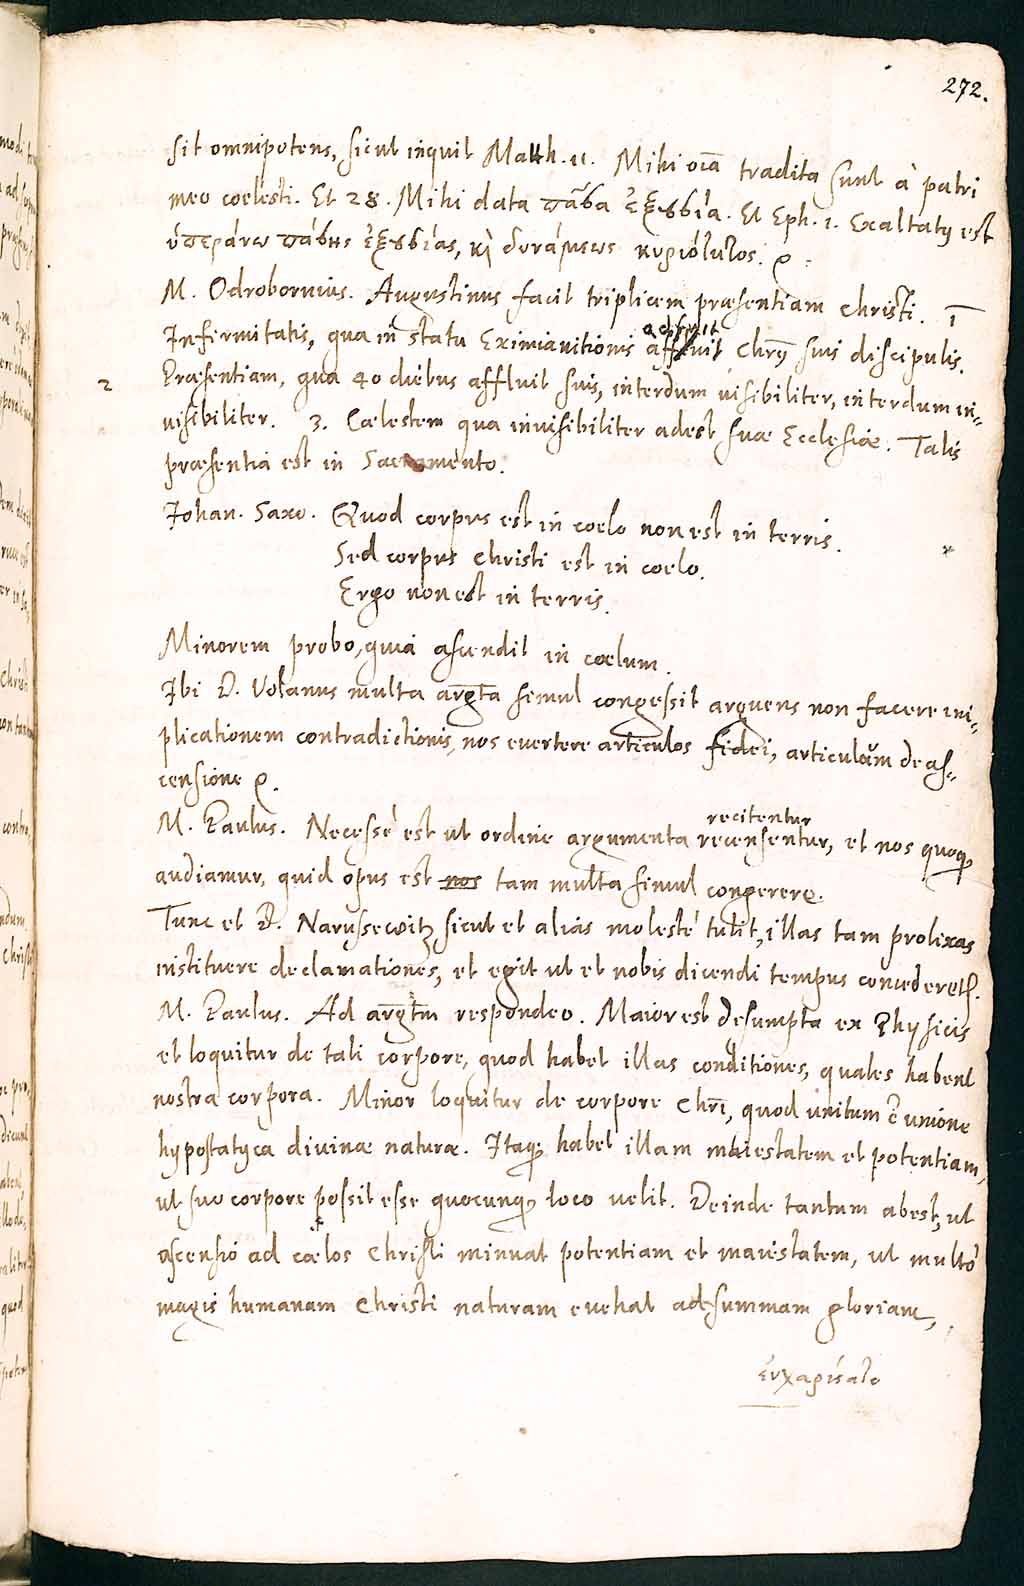 272.
sit omnipotens, sicut inquit Matth. 11. Mihi oīa tradita sunt à patri
meo coelesti. Et 28. Mihi data πᾶσα ἐξουσία. Et Eph. 1. Exaltatus est
ὑπεράνω πάσης ἐξουσίας, καὶ δυνάμεως κυριότητος.
M. Odrobornius. Augustinus facit triplicem præsentiam Christi. 1
adfuit
Infirmitatis, qua in statu Eximanitionis affluit Chrūs suis discipulis.
2 Præsentiam, qua 40 diebus affluit suis, interdum visibiliter, interdum in-
visibiliter. 3. Cœlestem qua invisibiliter adest suæ Ecclesiæ. Talis
præsentia est in Sacramento.
Johan. Saxo. Quod corpus est in coelo non est in terris.
Sed corpus Christi est in coelo.
Ergo non est in terris.
Minorem probo, quia ascendit in cœlum.
Ibi D. Volanus multa argta simul congessit arguens non facere im-
plicationem contradictionis, nos evertere articulos fidei, articulum de as-
censione
recitentur
M. Paulus. Necesse est ut ordine argumenta recensentur, et nos quoq;
audiamur, quid opus est nos tam multa simul congerere.
Tunc et D. Narussewitz sicut et alias molestè tulit, illas tam prolixas
instituere declamationes, et egit ut et nobis dicendi tempus concederetur.
M. Paulus. Ad argtm respondeo. Maior est desumpta ex Physicis
et loquitur de tali corpore, quod habet illas conditiones, quales habent
nostra corpora. Minor loquitur de corpore Chrī, quod unitum ē unione
hypostatyca divinæ naturæ. Itaq; habet illam maiestatem et potentiam,
ut suo corpore possit esse quocunq; loco velit. Deinde tantum abest, ut
ascensio ad cœlos Christi minuat potentiam et maiestatem, ut multò
magis humanam Christi naturam evehat ad summam gloriam,